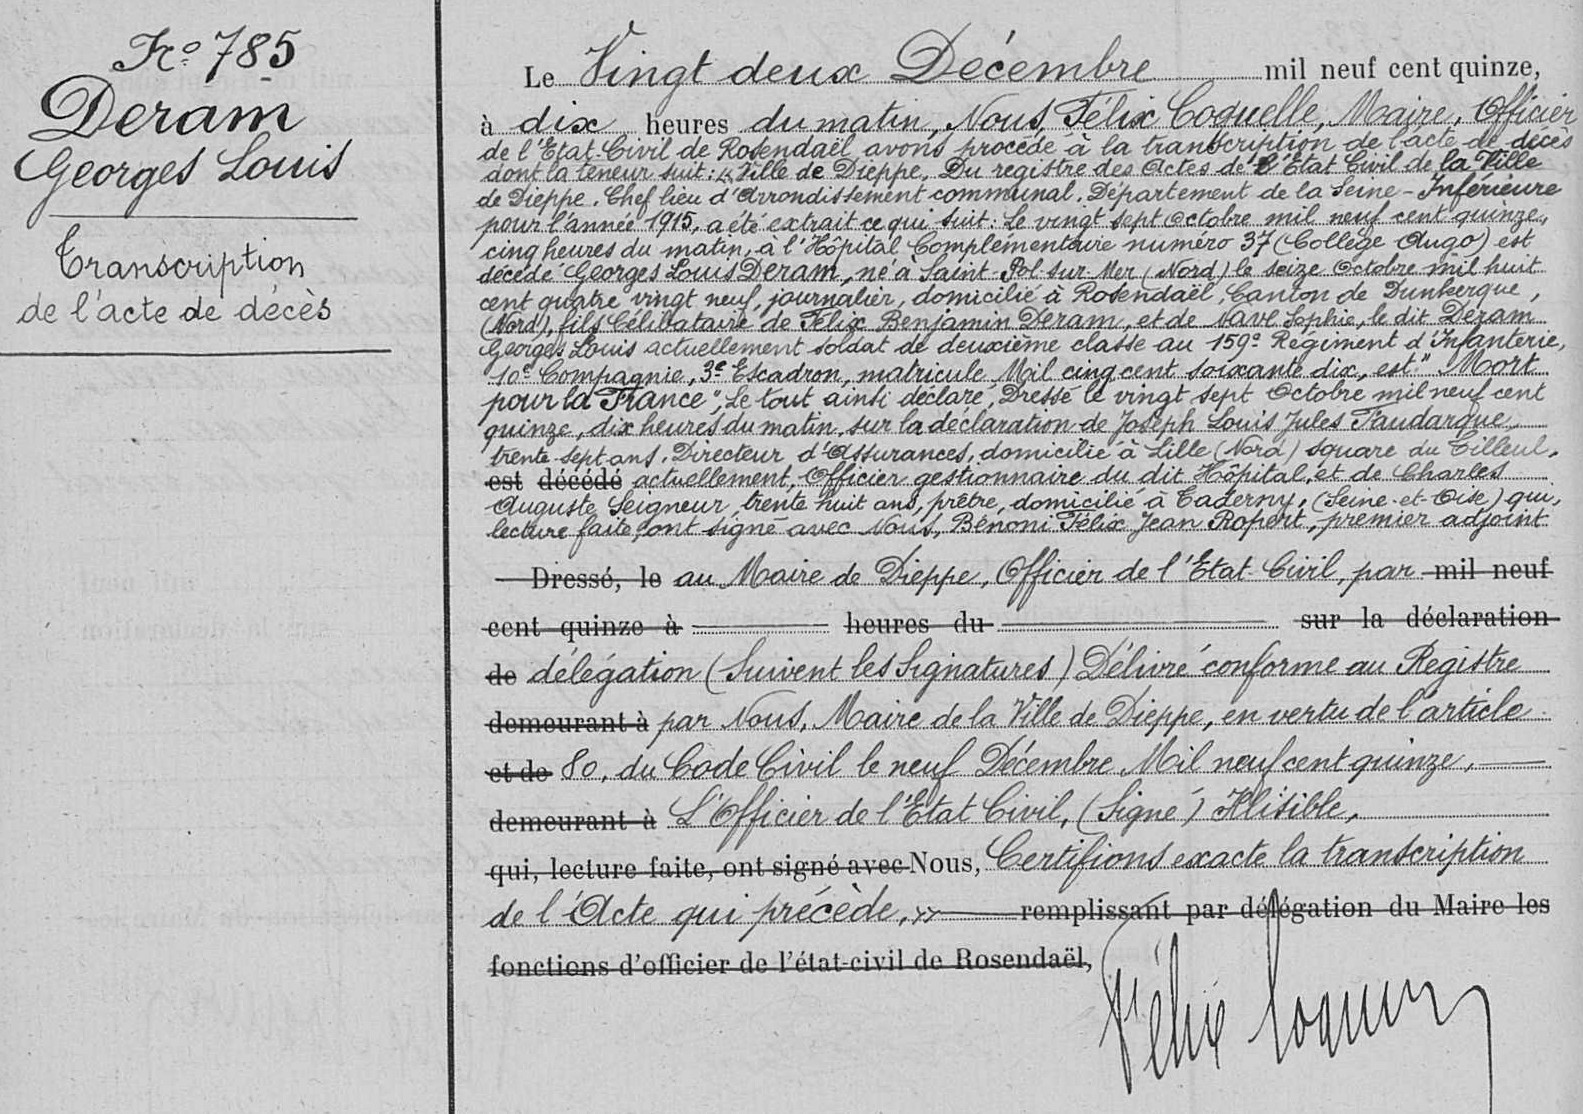 No 785
Deram
Georges Louis
Transcription
de l'acte de décès
Le Vingt deux Décembre mil neuf cent quinze,
à dix heures du matin, Nous, Félix Coquelle, Maire, Officier
de l'Etat-Civil de Rosendaël avons procédé à la transcription de l'acte de décès
dont la teneur suit: Ville de Dieppe. Du registre des Actes de l'Etat Civil de la Ville
de Dieppe. Chef lieu d'Arrondissement communal. Département de la Seine-Inférieure
pour l'année 1915, a été extrait ce qui suit: Le vingt sept Octobre mil neuf cent quinze,
cinq heures du matin, à l'Hôpital Complémentaire numéro 37 (Collège Ango) est
décédé Georges Louis Deram, né à Saint-Pol-sur-Mer (Nord) le seize Octobre mil huit
cent quatre vingt neuf, journalier, domicilié à Rosendaël, Canton de Dunkerque,
(Nord), fils Célibataire de Félix Benjamin Deram, et de Nave Sophie, le dit Deram
Georges Louis actuellement soldat de deuxième classe au 159e Régiment d'Infanterie,
10e Compagnie, 3e Escadron, matricule Mil cinq cent soixante dix, est "Mort
pour la France", Le tout ainsi déclaré, Dressé le vingt sept Octobre mil neuf cent
quinze, dix heures du matin, sur la déclaration de Joseph Louis Jules Faudarque,
trente-sept ans, Directeur d'Assurances, domicilié à Lille (Nord) square du Tilleul,
est décédé actuellement, Officier gestionnaire du dit Hôpital, et de Charles
Auguste Seigneur, trente huit ans, prêtre, domicilié à Taverny, (Seine-et-Oise) qui,
lecture faite, ont signé avec Nous, Bénoni Félix Jean Ropert, premier adjoint
Dressé, le au Maire de Dieppe, Officier de l'Etat-Civil, par mil neuf
cent quinze à heures du sur la déclaration
de délégation (Suivent les Signatures) Délivré conforme au Registre
demeurant à par Nous, Maire de la Ville de Dieppe, en vertu de l'article
et de 80, du Code Civil le neuf Décembre Mil neuf cent quinze,
demeurant à L'Officier de l'Etat Civil, (Signé) Illisible,
qui, lecture faite, ont signé avec Nous, Certifions exacte la transcription
de l'Acte qui précède, remplissant par délégation du Maire les
fonctions d'officier de l'état-civil de Rosendaël,
Félix Coquelle